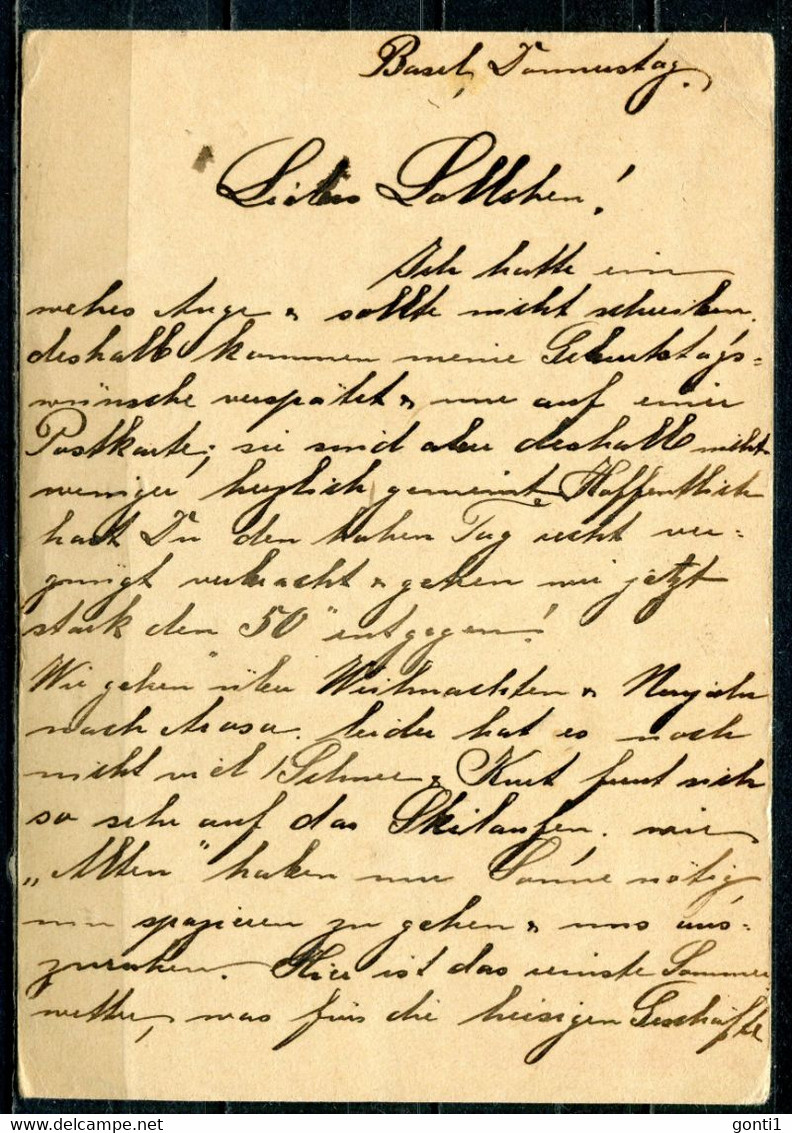 Basel, Donnerstag.
Liebes Lottchen!
Ich hatte ein
wehes Auge u. sollte nicht schreiben,
deshalb kommen meine Geburtstags-
wünsche verspätet u. nur auf einer
Postkarte; sie sind aber deshalb nicht
weniger herzlich gemeint. Hoffentlich
hast Du den hohen Tag recht ver-
gnügt verbracht u. gehen wir jetzt
stark den "50" entgegen!
Wir gehen über Weihnachten u. Neujahr
nach Arosa. leider hat es noch
nicht viel Schnee u. Kurt freut sich
so sehr auf das Skilaufen. wir
„Alten" haben nur Sonne nötig
um spazieren zu gehen u. uns aus-
zuruhen. Hier ist das reinste Sommer
wetter, was für die hiesigen Geschäfte
gonti1